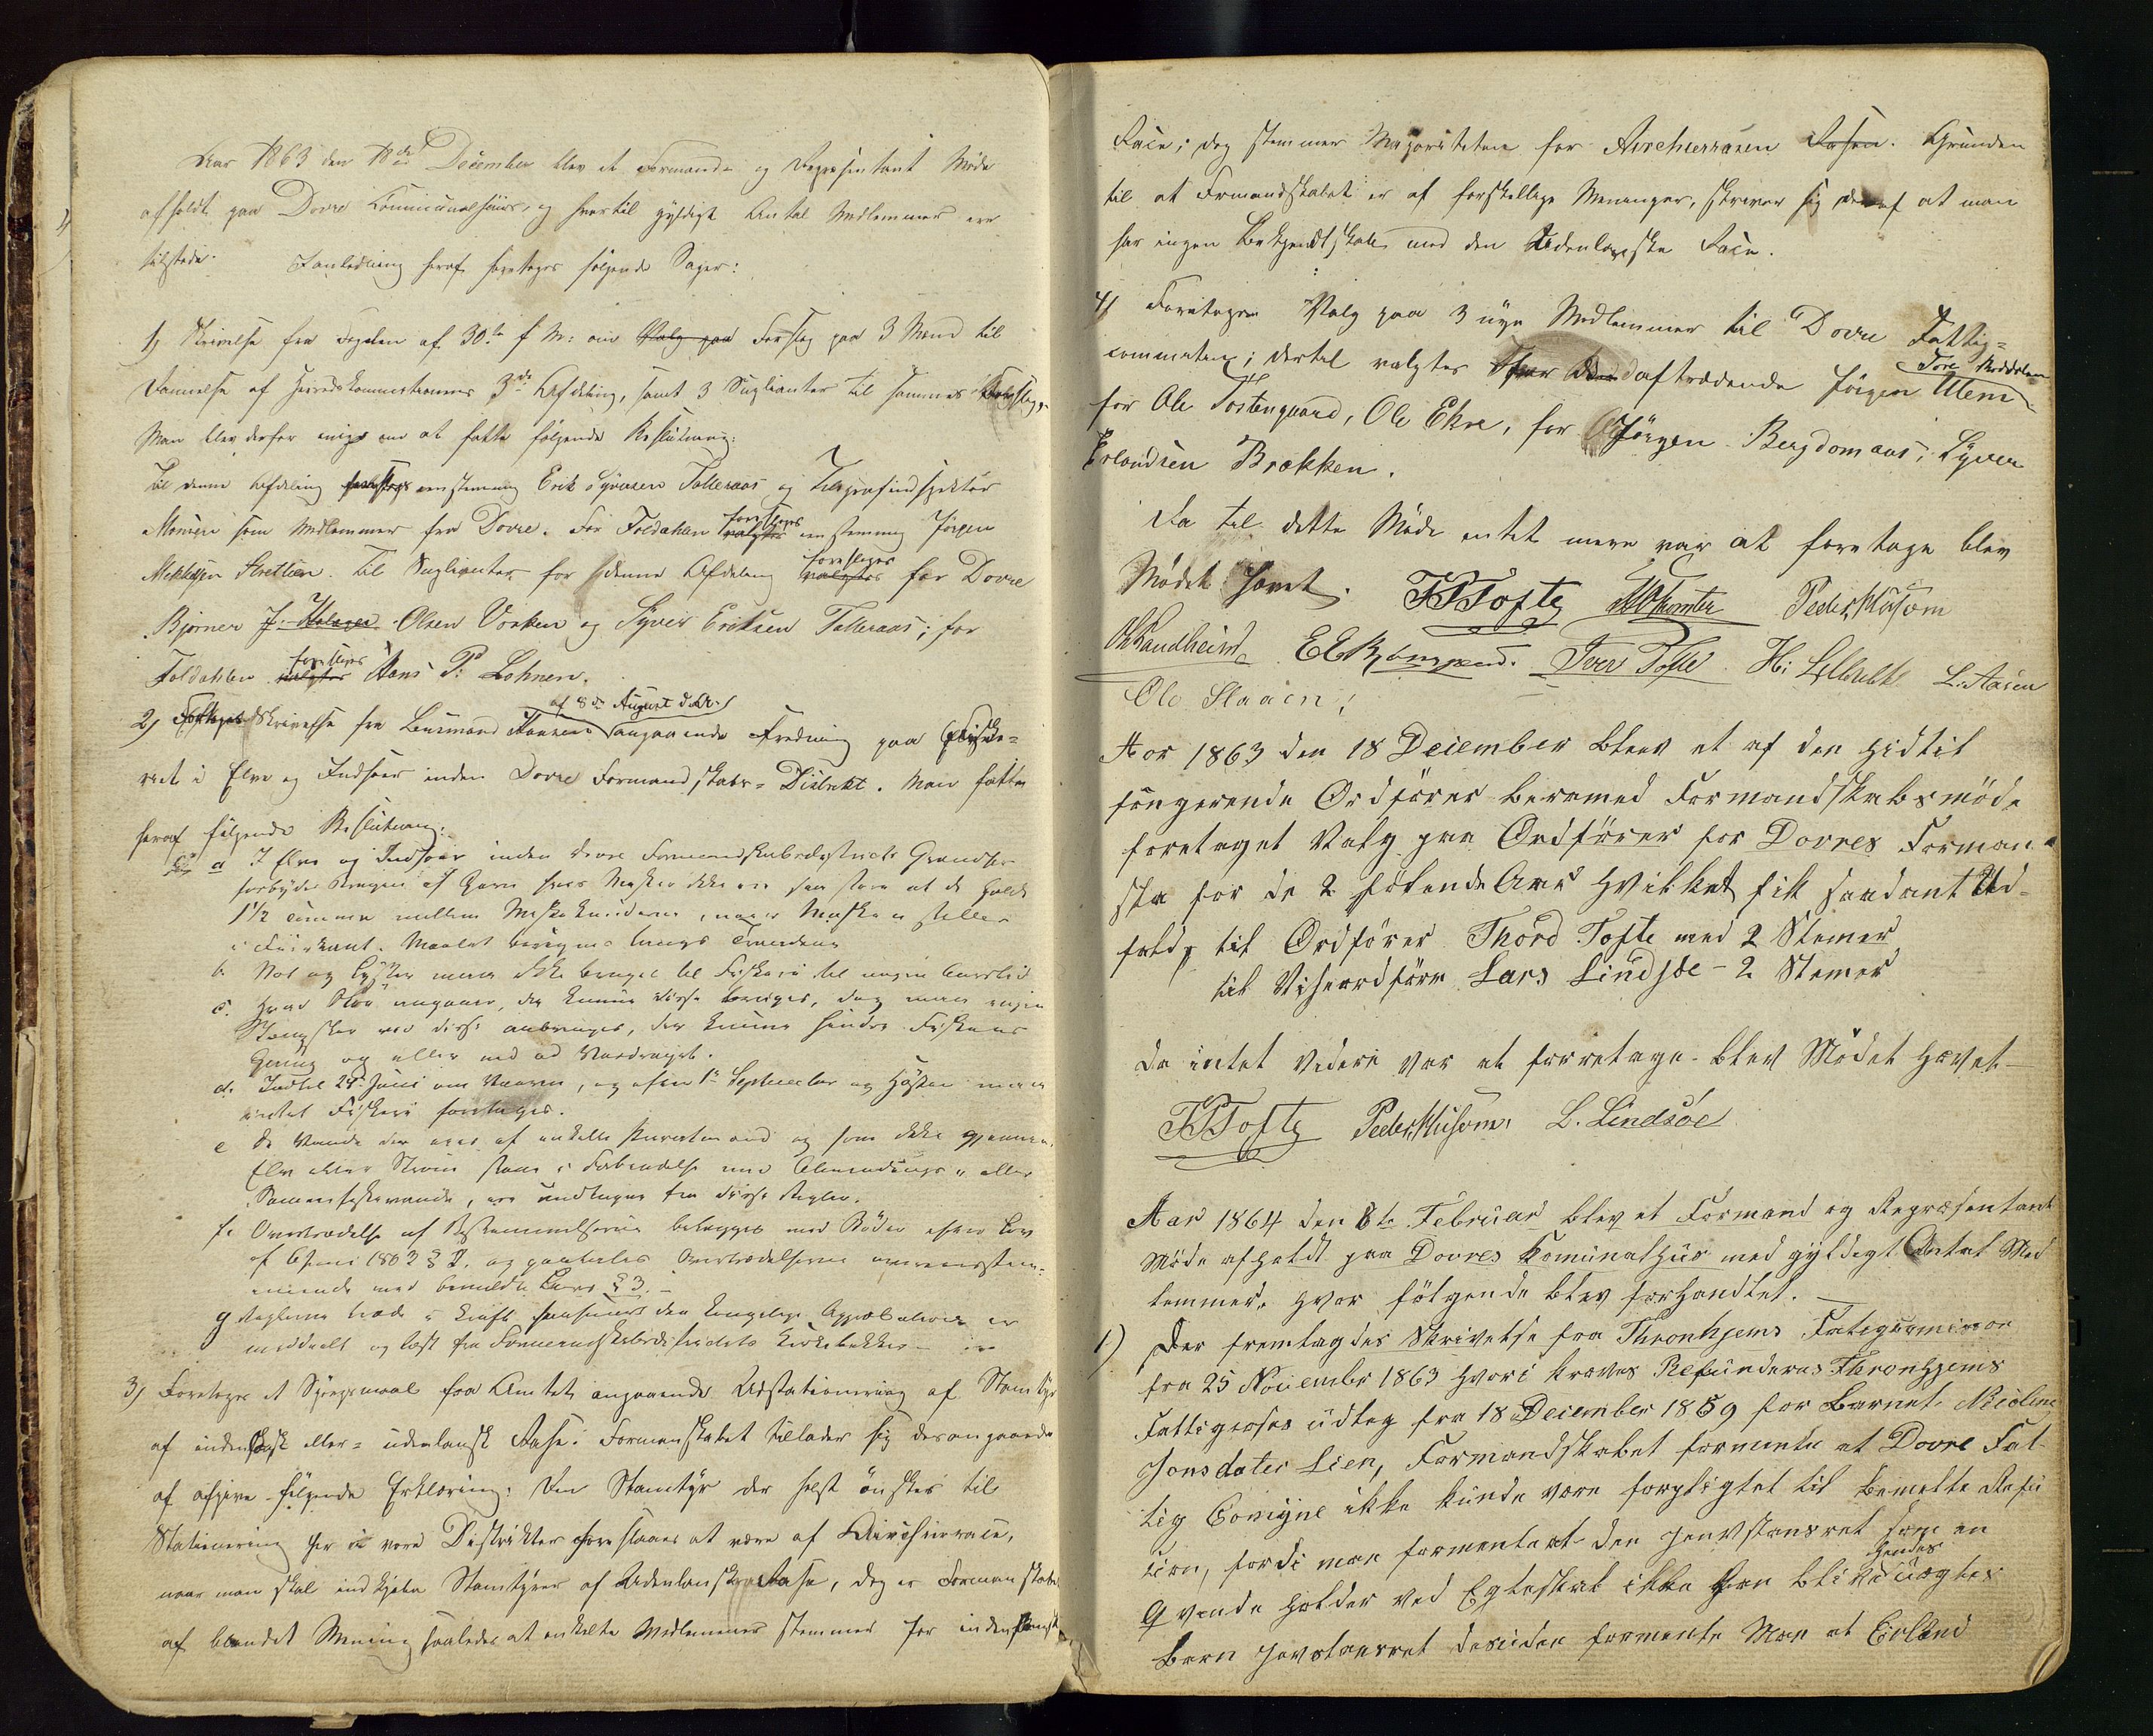 Aar 1863 den 18de December blev et Formand- og Repræsentant Møde
afholdt paa Dovre Kommunalhuus, og hvortil gyldigt Antal Medlemmer ere
tilstede. I Anledning heraf foretages følgende Sager:
1) Skrivelse fra Fogden af 30te f M: om Valg paa Forslag paa 3 Mænd til
Dannelse af Herredskommissionens 3die Afdeling, samt 3 Suplianter til sammes
Man blev derfor enige om at fatte følgende Beslutning:
Til denne Afdeling foreslaaes eenstemmig Erik Syversen Talleraas og Telegrafinspektør
Monsen som Medlemmer fra Dovre. For Foldahlen valgtes foreslaaes eenstemmig Jörgen
Mikkelsen Streitlien. Til Suplianter for denne Afdeling valgtes foreslaaes for Dovre
Bjørner Olsen Vorken og Syver Eriksen Talleraas; for
Foldahlen valgtes foreslaaes Hans P: Lohnen.
2) Skrivelse fra Lensmand Hansen af 8de August d. A. angaaende Fredning paa Fiske-
riet i Elve og Indsøer inden Dovre Formandskabs-Distrikt. Man fatter
heraf følgende Beslutning:
a I Elve og Indsøer inden Dovre Formandskabsdistrikts Grændser
forbydes Brugen af Garn hvis Masker ikke ere saa store at de holde
1 1/2 Tomme mellem Maskeknuderne, naar Masken stilles
i Fiirkant. Maalet beregnes langs Traadene
b. Not og Lyster maa ikke bruges til Fiskeri til nogen Aarstid
c. Hvad angaaer, da kunne disse bruges, dog maa ingen
Stængsler ved disse anbringes, der kunne hindre Fiskens
Gang op eller ned ad Vasdraget.
d. Indtil 24 Juni om Vaaren, og efter 1ste September og Høsten maa
intet Fiskeri foretages.
e De Vande der eies af enkelte Privatmænd og som ikke gjennem
Elv eller Strøm staae i Forbindelse med Almendings- eller
Sameiefiskevande, ere undtagne fra disse Regler.
f. Overtrædelse af Bestemmelserne belægges med Bøder efter Lov
af 6 Juni 1863 § 2. og paatales Overtrædelserne overeensstem-
mende med bemeldte Lovs § 3.
g Reglerne træde i Kraft saasnart den kongelige Approbation er
meddeelt og læst fra Formandskabsdistriktets Kirkebakker
3) Foretoges et Spørgsmaal fra Amtet angaaende Udstationering af Stamtyr
af indenlansk eller udenlansk Rase. Formanskabet tillader sig desangaaende
at afgive følgende Erklæring: Den Stamtyr der helst önskes til
Stationering her i vore Distrikter foreslaaes at være af Airchirrace,
naar man skal indkjøbe Stamtyrer af Udenlansk Rase, dog er Formanskabet
af blandet Mening saaledes at enkelte Medlemmer stemmer for indenlansk
Race; dog stemmer Majoriteten for Airchirrasen Rasen. Grunden
til at Formandskabet er af forskellige Meninger, skriver sig deraf at man
har ingen Bekjendtskab med den Udenlanske Race.
4) Foretoges Valg paa 3 nye Medlemmer til Dovre Fattig-
commission; dertil valgtes for den aftrædende Jörgen Ulem Tore
for Ole Tostengaard, Ole Ekre, for Jörgen Bergdomaas, Syver
Erlandsen Brækken.
Da til dette Møde intet mere var at foretage blev
Mødet hævet. T T Tofte Peder Musom
O Landheim Iver Tofte L. Aasen
Ole Slaaen
Aar 1863 den 18 December blev et af den hidtil
fungerende Ordförer berammed Formandskabsmöde
foretaget Valg paa Ordfører for Dovres Forman-
ska for de 2 følende Aar hvilket fik saadant Ud-
fald, til Ordförer Thord Tofte med 2 Stemer
til Viseordförer Lars Lindsöe - 2 Stemer
Da intet videre var at forretage blev Mödet hævet -
T T Tofte Peder Musom L. Lindsöe
Aar 1864 den 8te Februar blev et Formand og Repræsentant
Möde afholdt paa Dovres Komunalhus med gyldigt Antal Med
lemmer, hvor fölgende blev forhandlet.
1) Der fremlagdes Skrivelse fra Thronhjems Fatigkomision
fra 25 November 1863 hvori kræves Refunderes Thronhjems
Fattigvæses udlæg fra 18 December 1859 for Barnet Nicoline
Jonsdater Lien, Formandskabet formente at Dovre Fat-
tig Comisjne ikke kunde være forpligtet til bemelte Refu
sion, fordi man formente at den Hevstansret som en
Qvinde holder ved Egteskab ikke kan blive hendes uægtes
Barn Hevstansret desuden formente Man at Erland